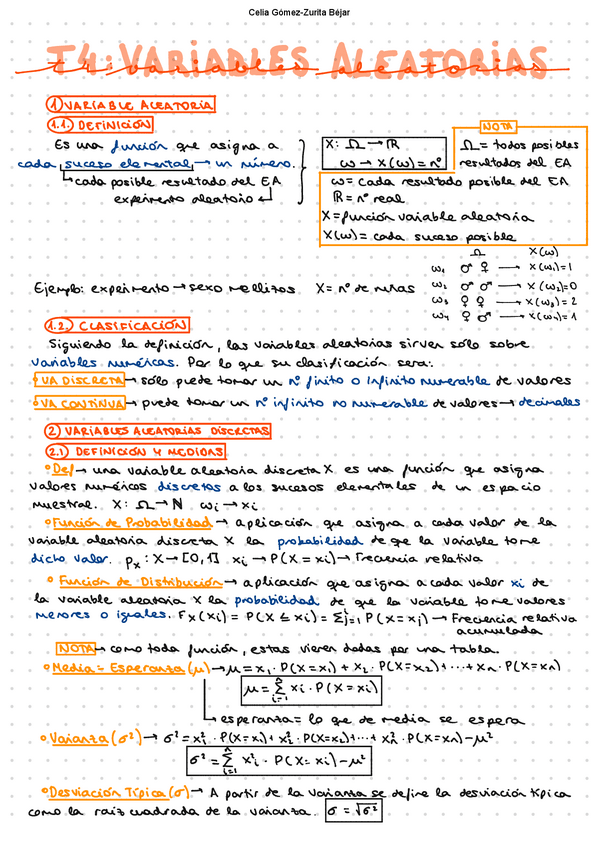 Celia Gómez-Zurita Béjar
T4: VARIABLES ALEATORIAS
t4: variables aleatorias
① VARIABLE ALEATORIA
1.1. DEFINICIÓN
Es una función que asigna a
cada suceso elemental → un número.
↳ cada posible resultado del EA
experimento aleatorio ↵
X: Ω → ℝ
ω → X(ω) = nº
NOTA
Ω = todos posibles
resultados del EA
ω = cada resultado posible del EA
ℝ = nº real
X = función variable aleatoria
X(ω) = cada suceso posible
Ω X(ω)
ω₁ ♂ ♀ → X(ω₁) = 1
ω₂ ♂ ♂ → X(ω₂) = 0
ω₃ ♀ ♀ → X(ω₃) = 2
ω₄ ♀ ♂ → X(ω₄) = 1
Ejemplo: experimento → sexo mellizos X = nº de niñas
1.2. CLASIFICACIÓN
Siguiendo la definición, las variables aleatorias sirven solo sobre
variables numéricas. Por lo que su clasificación será:
• VA DISCRETA → sólo puede tomar un nº finito o infinito numerable de valores
• VA CONTINUA → puede tomar un nº infinito no numerable de valores → decimales
② VARIABLES ALEATORIAS DISCRETAS
2.1 DEFINICIÓN Y MEDIDAS
• Def → una variable aleatoria discreta X es una función que asigna
valores numéricos discretos a los sucesos elementales de un espacio
muestral. X: Ω → ℕ ωi → xi
• Función de Probabilidad → aplicación que asigna a cada valor de la
variable aleatoria discreta X la probabilidad de que la variable tome
dicho valor. pₓ: X → [0,1] xi → P(X = xi) → Frecuencia relativa
• Función de Distribución → aplicación que asigna a cada valor xi de
la variable aleatoria X la probabilidad de que la variable tome valores
menores o iguales. Fx(xi) = P(X ≤ xi) = Σʲi=1 P(X = xj) → Frecuencia relativa
acumulada
NOTA → como toda función, estas vienen dadas por una tabla.
• Media = Esperanza (μ) → μ = x₁ · P(X=x₁) + x₂ · P(X=x₂) + ··· + xn · P(X=xn)
μ = Σⁿi=1 xi · P(X = xi)
↳ esperanza = lo que de media se espera
• Varianza (σ²) → σ² = x²i · P(X=x₁) + x²₂ · P(X=x₂) + ··· + x²n · P(X=xn) - μ²
σ² = Σⁿi=1 x²i · P(X = xi) - μ²
• Desviación Típica (σ) → A partir de la varianza se define la desviación típica
como la raíz cuadrada de la varianza. σ = √σ²